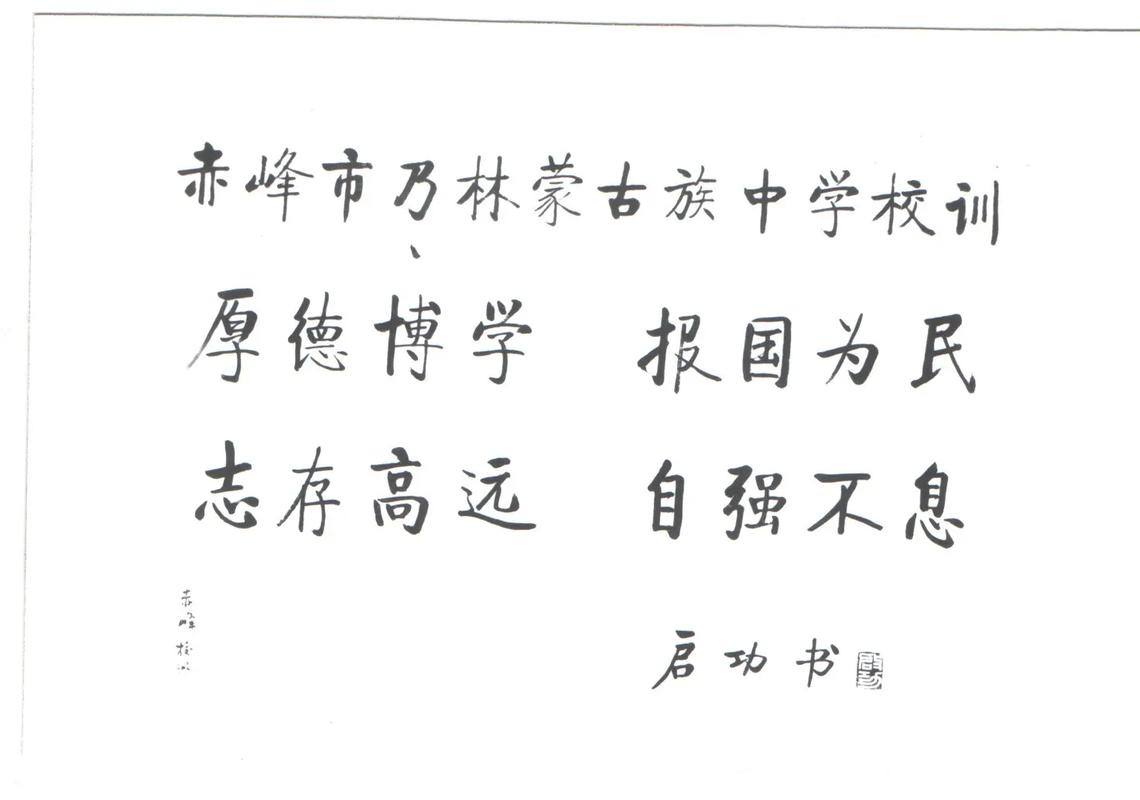 赤峰市乃林蒙古族中学校训
厚德博学 报国为民
志存高远 自强不息
启功书
启功
赤峰